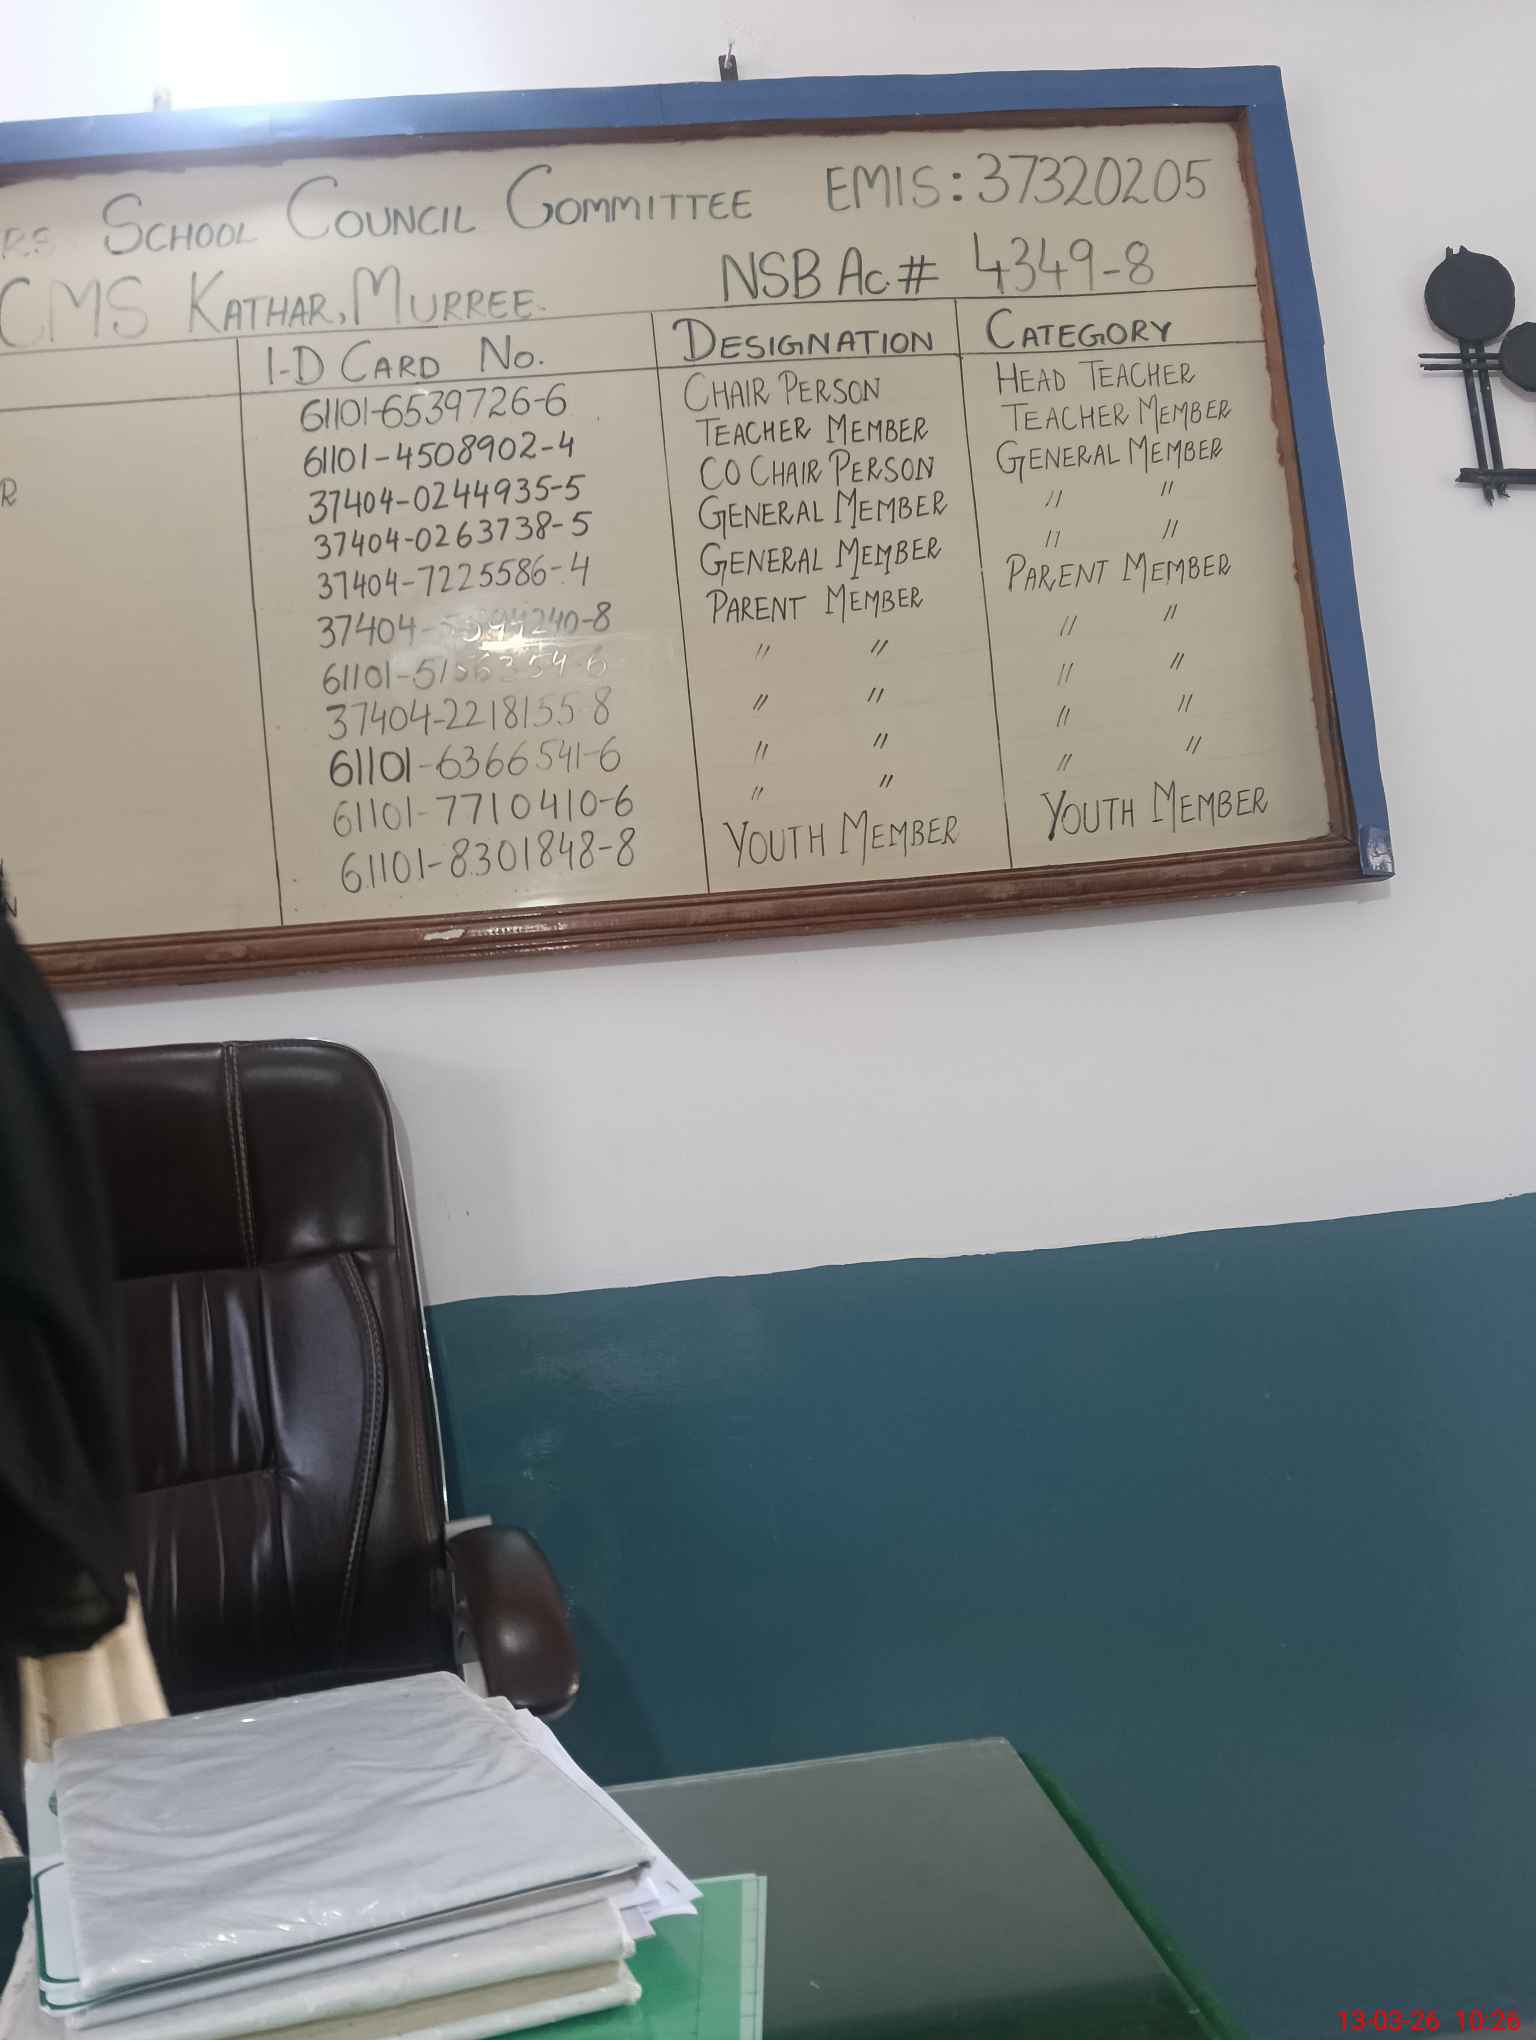 SCHOOL COUNCIL COMMITTEE EMIS: 37320205
CMS KATHAR, MURREE. NSB Ac # 4349-8
I-D CARD NO. DESIGNATION CATEGORY
61101-6539726-6 CHAIR PERSON HEAD TEACHER
61101-4508902-4 TEACHER MEMBER TEACHER MEMBER
37404-0244935-5 CO CHAIR PERSON GENERAL MEMBER
37404-0263738-5 GENERAL MEMBER " "
37404-7225586-4 GENERAL MEMBER " "
PARENT MEMBER PARENT MEMBER
" " " "
37404-2218155-8 " " " "
61101-6366541-6 " " " "
61101-7710410-6 " " " "
61101-8301848-8 YOUTH MEMBER YOUTH MEMBER
13-03-26 10:26